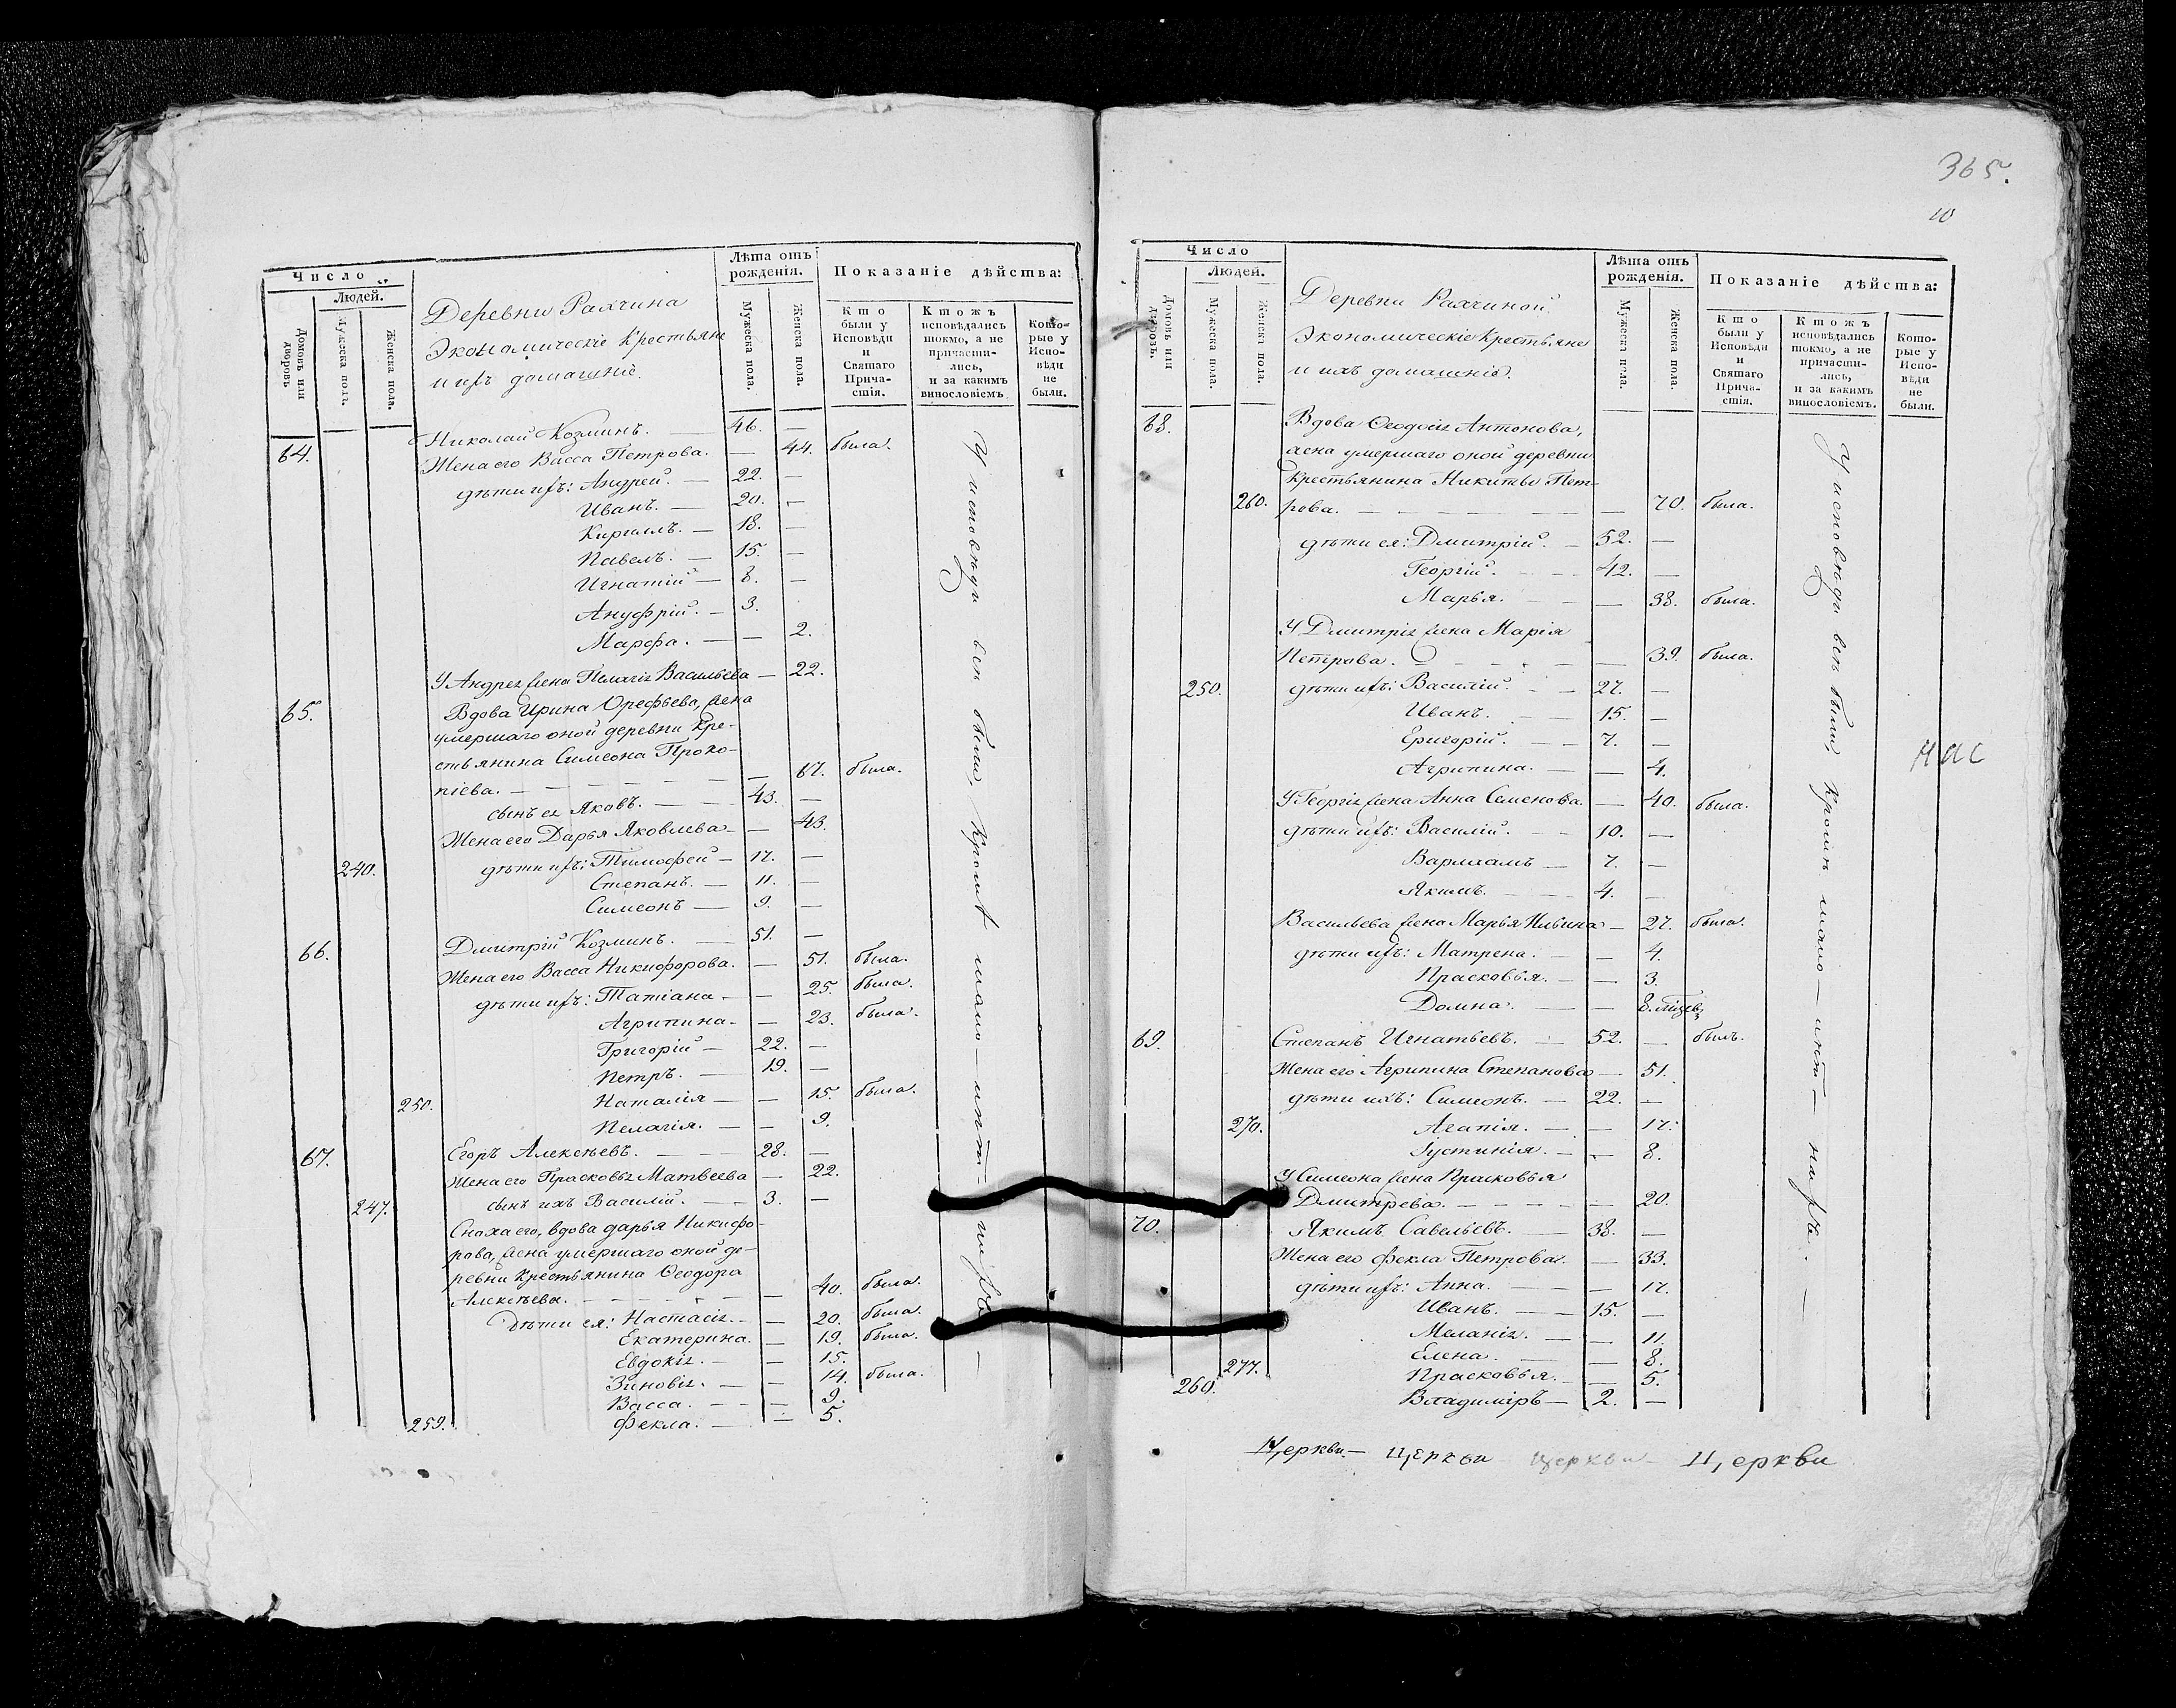 Число
Людей.
Домовъ или дворовъ
Мужеска полъ.
Женска пола.
Деревни Рахчина
Экономическіе Крестьяне
и ихъ домашніе.
Лѣта отъ рожденія.
Мужеска пола.
Женска пола.
Показаніе дѣйства:
Кто были у Исповѣди и Святаго Прича-стія.
Ктожъ исповѣдались токмо, а не причасти-лись, и за какимъ винословіемъ
Кото-рые у Испо-вѣди не были.
64. Николай Козминъ. — 46. —
Жена его Васса Петрова. — 44. была.
дѣти ихъ: Андрей. — 22. —
Иванъ. — 20. —
Кириллъ. — 18. —
Павелъ. — 15. —
Игнатій — 8. —
Ануфрій. — 3.
Марфа. — — 2.
У Андрея жена Пелагія Васильева — 22.
65. Вдова Ирина Орефьева, жена
умершаго оной деревни Кре-
стьянина Симеона Проко-
піева. — — — — — 67. была.
сынъ ея Яковъ. — — 43. —
Жена его Дарья Яковлева — — 43.
240. дѣти ихъ: Тимофей — 17. —
Степанъ. — 11. —
Симеонъ — 9. —
66. Дмитрій Козминъ. — 51. —
Жена его Васса Никифорова. — 51. была.
дѣти ихъ: Татіана — — 25. была.
Агрипина — — 23. была.
Григорій — 22. —
Петръ. — 19. —
250. Наталія — — 15. была.
Пелагія. — — 9.
67. Егоръ Алексѣевъ. — — 28. —
Жена его Прасковья Матвеева — 22.
247. сынъ ихъ Василій. — — 3. —
Сноха его, вдова дарья Никифо-
рова, жена умершаго оной де-
ревни крестьянина Ѳеодора
Алексѣева. — — — — — 40. была.
Дѣти ея: Настасія. — — 20. была.
Екатерина. — 19. была.
Евдокія. — — 15.
Зиновія. — — 14. была.
Васса. — — — 9.
259. Фекла. — — 5.
У исповѣди всѣ были, Кромѣ мало — лѣт — нихъ —
365.
10
Число
Людей.
Домовъ или дворовъ.
Мужеска пола.
Женска пола.
Деревни Рахчиной,
Экономическіе Крестьяне
и ихъ домашніе.
Лѣта отъ рожденія.
Мужеска пола.
Женска пола.
Показаніе дѣйства:
Кто были у Исповѣди и Святаго Прича-стія.
Ктожъ исповѣдались токмо, а не причасти-лись, и за какимъ винословіемъ.
Кото-рые у Испо-вѣди не были.
68. Вдова Ѳеодосія Антонова,
жена умершаго оной деревни
крестьянина Никиты Пет-
260. рова. — — — — — — — 70. была.
дѣти ея: Дмитрій. — 52. —
Георгій. — — 42. —
Марья. — — — 38. была.
У Дмитрія жена Марія
Петрова. — — — — — 39. была.
250. дѣти ихъ: Василій. — — 27. —
Иванъ. — — 15. —
Григорій. — — 7. —
Агрипина. — — 4.
У Георгія жена Анна Семенова. — 40. была.
дѣти ихъ: Василій. — — 10. —
Варлаамъ — 7. —
Якимъ. — — 4. —
Васильева жена Марья Ильина — 27. была.
дѣти ихъ: Матрена. — — 4.
Прасковья. — — 3.
Домна. — — 8.
69. Степанъ Игнатьевъ. — 52. — былъ.
Жена его Агрипина Степанова — 51.
дѣти ихъ: Симеонъ. — 22. —
270. Агапія. — — 17.
Іустинія. — — 8.
У Симеона жена Прасковья
Дмитрева. — — — — — 20.
70. Якимъ Савельевъ. — 38. —
Жена его Фекла Петрова. — 33.
дѣти ихъ: Анна. — — 17.
Иванъ. — — 15. —
Меланія. — — 11.
Елена. — — 8.
277. Прасковья. — — 5.
260. Владиміръ — 2. —
У исповѣди всѣ были, Кромѣ мало — лѣт — нихъ. —
нас
Церкви — церкви церкви — Церкви